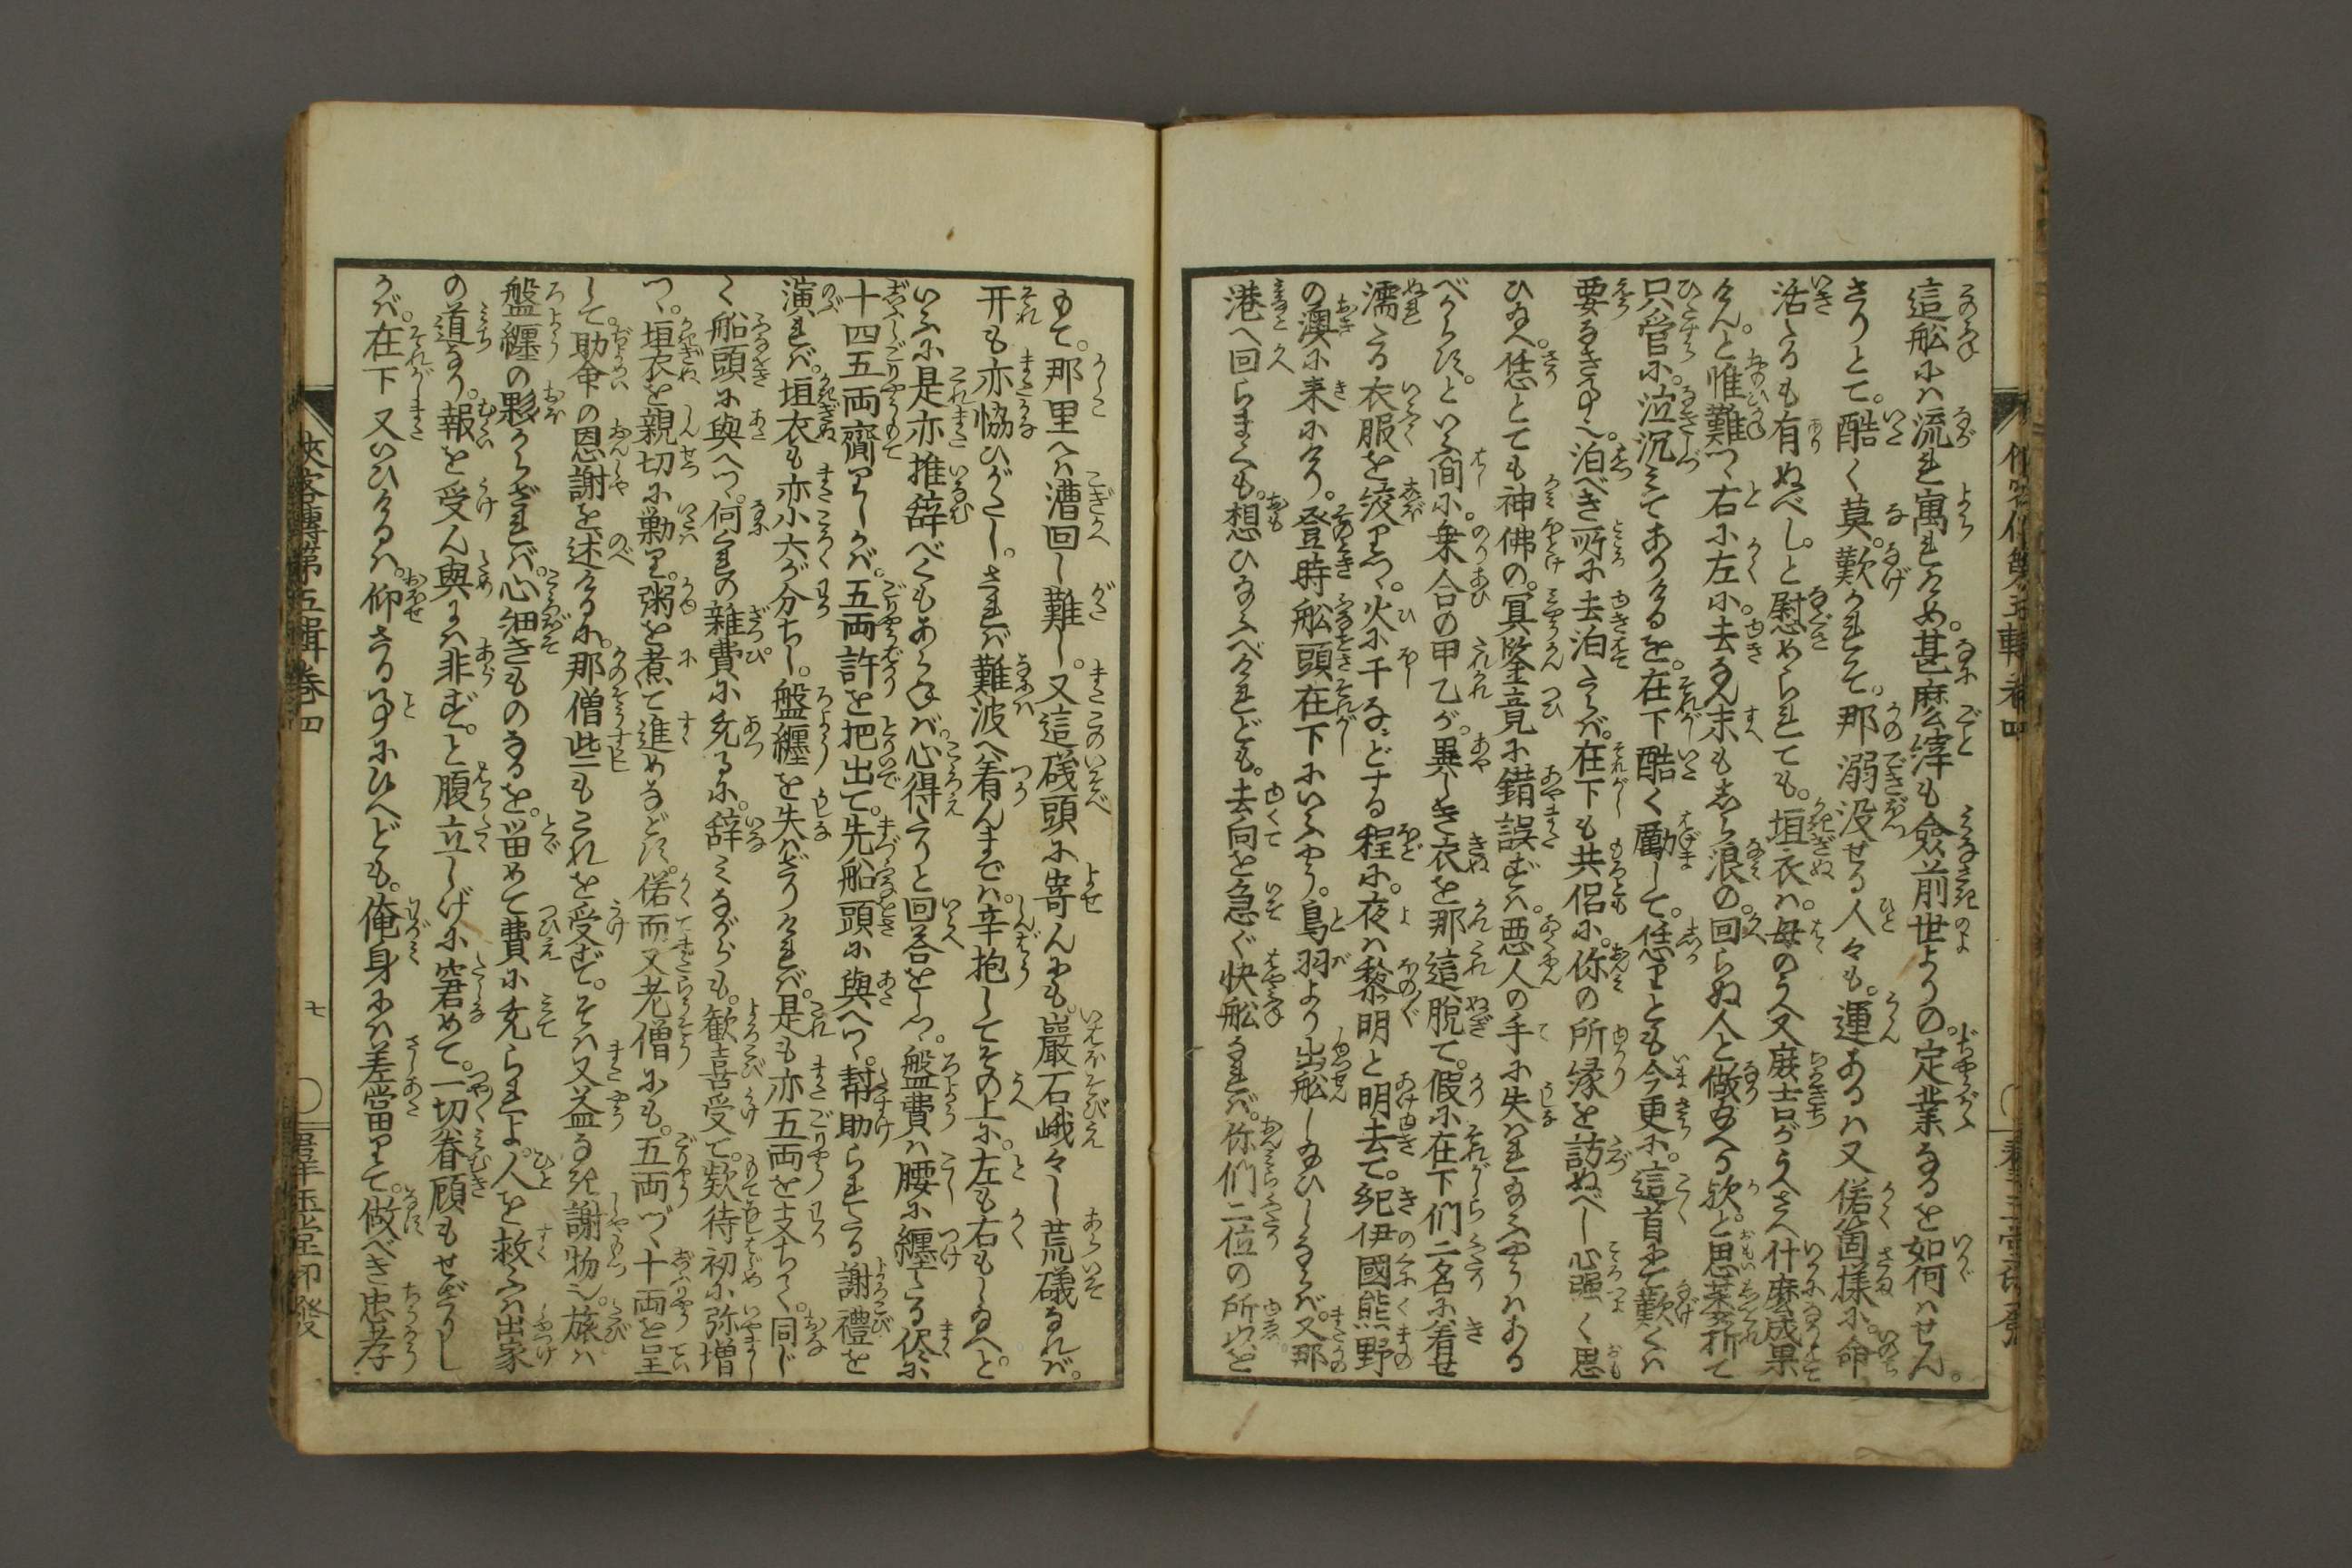 這舩ふハ流れ寓れため。甚麼縡も僉前世よりの。定業なるを如何ハせん。
さりとて。酷く莫歎かれそ。那溺没せる人々も。運あるハ又偌箇様ふ。命
活たるも有ぬべし。と慰めらるれても。垣衣ハ。母のうへ又廐吉がうへさへ什麼成果
けん。と惟難つ右ふ左ふ。去なん末もしら浪の。回らぬ人と做給へる歟。と思萎折て
只管ふ。泣沉みてありけるを。在下酷く勵して。恁りとも今更ふ。這首にて歎くハ
要なき事也。泊べき所ふ去泊たらバ。在下も共侶ふ。你の所縁を訪ぬべし心强く思
ひ給へ。恁とても神佛の。冥鑒竟ふ錯誤ずハ。悪人の手ふ失ハれ給ふやうハある
べからず。といふ間ふ。乗合の甲乙が。異しき衣を那這脱て。假ふ在下們二名ふ着せ
濡たる衣服を絞りつ。火ふ干なンどする程ふ。夜ハ黎明と明去て。紀伊國熊野
の澳ふ来ふけり。登時舩頭在下ふいふやう。鳥羽より出舩し給ひしならバ。又那
港へ回らまくも。想ひ給ふべけれども。去向を急ぐ快舩なれバ。你們二位の所以を
もて。那里へハ漕回し難し。又這礒頭ふ寄んにも。巖石峨々し荒礒なれバ。
开も亦協ひがたし。されバ難波へ着んまでハ。辛抱してその上ふ。左も右もし給へ。と
いふふ是亦推辞べくもあらねバ。心得たりと回答をしつ。盤費ハ腰ふ纏たる侭ふ
十四五両齊りしかバ。五両許を把出て。先船頭ふ與へつ。幇助られたる謝禮を
演れバ。垣衣も亦小六が分ちし。盤纏を失ハざりけれバ。是も亦五両を支ちて。同じ
く船頭ふ與へつ。何くれの雜費ふ充るふ。辞みながらも。歓喜受て。欵待初ふ弥増
つ。垣衣を親切ふ勦り。粥を煮て進めなどす。偌而又老僧ふも。五両づゝ十両を呈
して。助命の恩謝を述けるふ。那僧些もこれを受ず。そハ又益なき謝物也。旅ハ
盤纏の夥からざれバ。心細きものなるを。畄めて費ふ充られよ。人を救ふハ出家
の道なり。報を受ん與にハ非ず。と腹立しげふ窘めて。一切眷顧もせざりし
かバ。在下又いひけるハ。仰さる事ふ候へども。俺身ふハ差當りて。做べき忠孝
俠客傳第五輯卷四
七